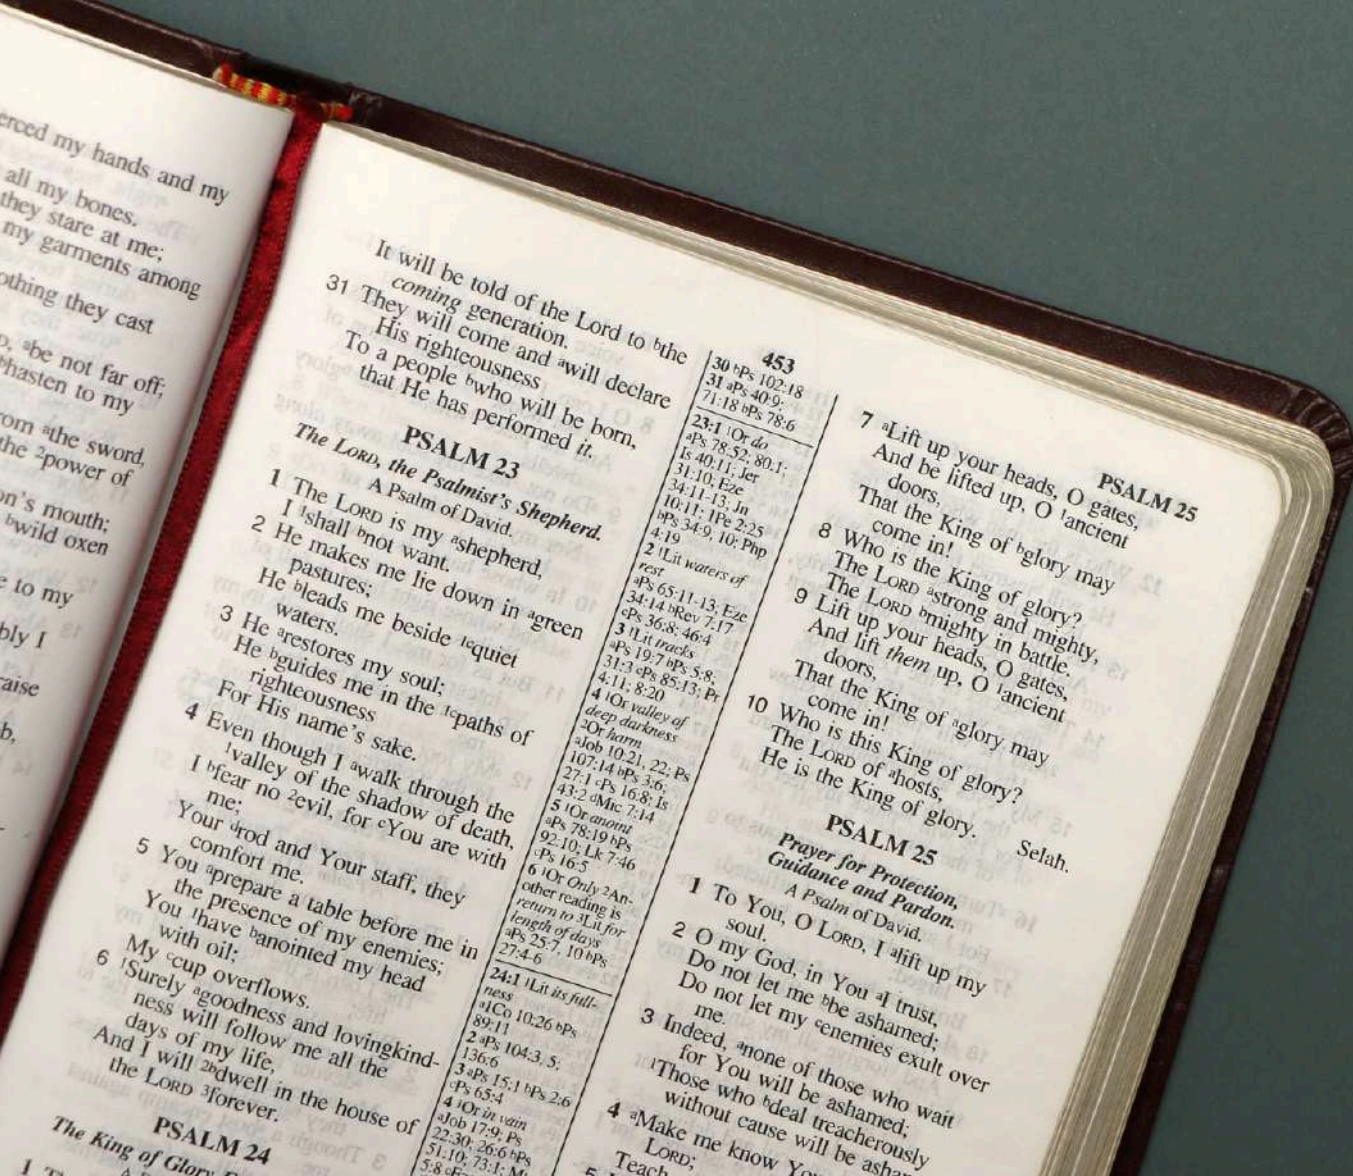 erced my hands and my
all my bones.
they stare at me;
my garments among
othing they cast
ᵃbe not far off;
ᵇhasten to my
rom ᵃthe sword,
the ²power of
on's mouth;
ᵇwild oxen
e to my
bly I
raise
b,
It will be told of the Lord to ᵇthe
coming generation.
31 They will come and ᵃwill declare
His righteousness
To a people ᵇwho will be born,
that He has performed it.
PSALM 23
The LORD, the Psalmist's Shepherd.
A Psalm of David.
1 The LORD is my ᵃshepherd,
I ¹shall ᵇnot want.
2 He makes me lie down in ᵃgreen
pastures;
He ᵇleads me beside ¹ᶜquiet
waters.
3 He ᵃrestores my soul;
He ᵇguides me in the ¹ᶜpaths of
righteousness
For His name's sake.
4 Even though I ᵃwalk through the
¹valley of the shadow of death,
I ᵇfear no ²evil, for ᶜYou are with
me;
Your ᵈrod and Your staff, they
comfort me.
5 You ᵃprepare a table before me in
the presence of my enemies;
You ¹have ᵇanointed my head
with oil;
My ᶜcup overflows.
6 ¹Surely ᵃgoodness and lovingkind-
ness will follow me all the
days of my life,
And I will ²ᵇdwell in the house of
the LORD ³forever.
PSALM 24
The King of Glory
453
30 ᵇPs 102:18
31 ᵃPs 40:9;
71:18 ᵇPs 78:6
23:1 ¹Or do
ᵃPs 78:52; 80:1;
Is 40:11; Jer
31:10; Eze
34:11-13; Jn
10:11; 1Pe 2:25
ᵇPs 34:9, 10; Php
4:19
2 ¹Lit waters of
rest
ᵃPs 65:11-13; Eze
34:14 ᵇRev 7:17
ᶜPs 36:8; 46:4
3 ¹Lit tracks
ᵃPs 19:7 ᵇPs 5:8;
31:3 ᶜPs 85:13; Pr
4:11; 8:20
4 ¹Or valley of
deep darkness
²Or harm
ᵃJob 10:21, 22; Ps
107:14 ᵇPs 3:6;
27:1 ᶜPs 16:8; Is
43:2 ᵈMic 7:14
5 ¹Or anoint
ᵃPs 78:19 ᵇPs
92:10; Lk 7:46
ᶜPs 16:5
6 ¹Or Only ²An-
other reading is
return to ³Lit for
length of days
ᵃPs 25:7, 10 ᵇPs
27:4-6
24:1 ¹Lit its full-
ness
ᵃ1Co 10:26 ᵇPs
89:11
2 ᵃPs 104:3, 5;
136:6
3 ᵃPs 15:1 ᵇPs 2:6
ᶜPs 65:4
4 ¹Or in vain
ᵃJob 17:9; Ps
22:30; 26:6 ᵇPs
51:10; 73:1;
PSALM 25
7 ᵃLift up your heads, O gates,
And be lifted up, O ¹ancient
doors,
That the King of ᵇglory may
come in!
8 Who is the King of glory?
The LORD ᵃstrong and mighty,
The LORD ᵇmighty in battle.
9 Lift up your heads, O gates,
And lift them up, O ¹ancient
doors,
That the King of ᵃglory may
come in!
10 Who is this King of glory?
The LORD of ᵃhosts,
He is the King of glory.
Selah.
PSALM 25
Prayer for Protection,
Guidance and Pardon.
A Psalm of David.
1 To You, O LORD, I ᵃlift up my
soul.
2 O my God, in You ᵃI trust,
Do not let me ᵇbe ashamed;
Do not let my ᶜenemies exult over
me.
3 Indeed, ᵃnone of those who wait
for You will be ashamed;
¹Those who ᵇdeal treacherously
without cause will be asha
4 ᵃMake me know You
LORD;
Teach